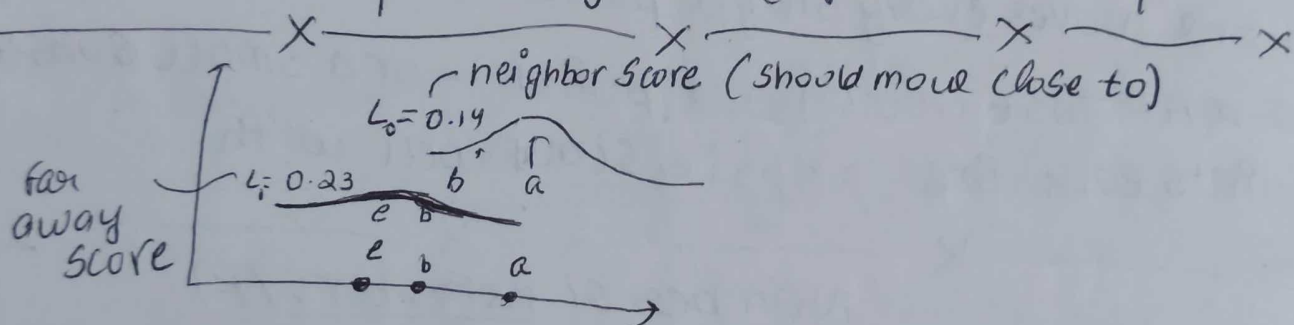 neighbor score (should move close to)
L₀= 0.14
far away score
L₁= 0.23
b
a
e
b
e
b
a